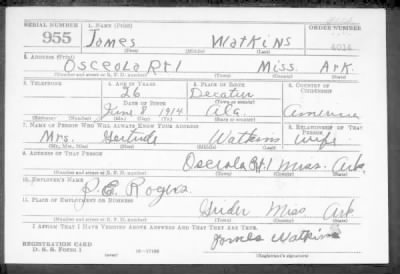 SERIAL NUMBER 1. NAME (Print) ORDER NUMBER
955 James Watkins 4014
(First) (Middle) (Last)
2. ADDRESS (Print)
Osceola Rt 1 Miss. Ark.
(Number and street or R. F. D. number) (Town) (County) (State)
3. TELEPHONE 4. AGE IN YEARS 5. PLACE OF BIRTH 6. COUNTRY OF CITIZENSHIP
26 Decatur
DATE OF BIRTH (Town or county)
June 8 1914 Ala America
(Exchange) (Number) (Mo.) (Day) (Yr.) (State or country)
7. NAME OF PERSON WHO WILL ALWAYS KNOW YOUR ADDRESS 8. RELATIONSHIP OF THAT PERSON
Mrs. Gertrude Watkins wife
(Mr., Mrs., Miss) (First) (Middle) (Last)
9. ADDRESS OF THAT PERSON
Osceola Rt 1 Miss. Ark.
(Number and street or R. F. D. number) (Town) (County) (State)
10. EMPLOYER'S NAME
Rogers
11. PLACE OF EMPLOYMENT OR BUSINESS
Grider Miss Ark
(Number and street or R. F. D. number) (Town) (County) (State)
I AFFIRM THAT I HAVE VERIFIED ABOVE ANSWERS AND THAT THEY ARE TRUE.
REGISTRATION CARD James Watkins
D. S. S. Form 1 16—17105 (Registrant's signature)